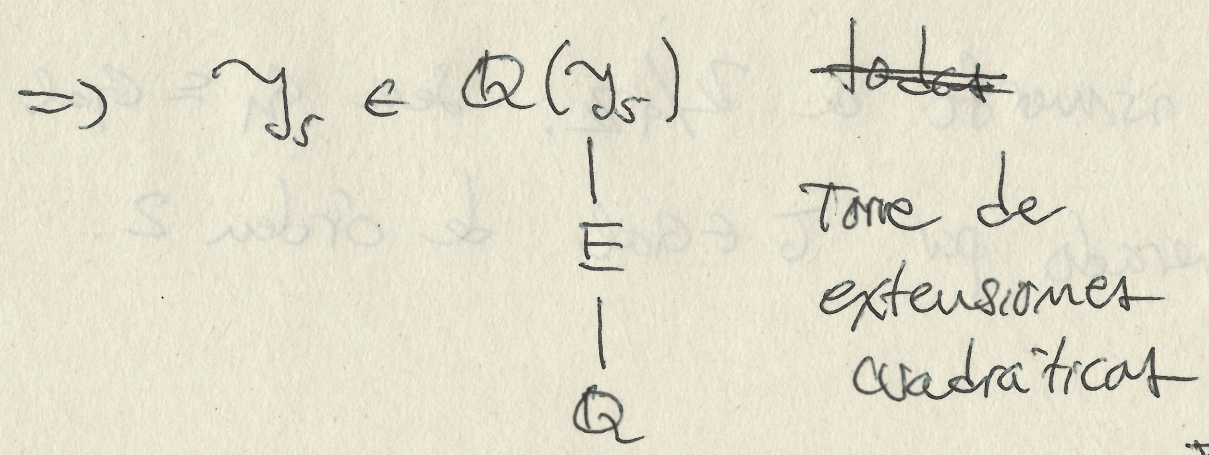 ⇒ ζ₅ ∈ Q(ζ₅) ~~todas~~
|
E
|
Q
Torre de
extensiones
cuadráticas